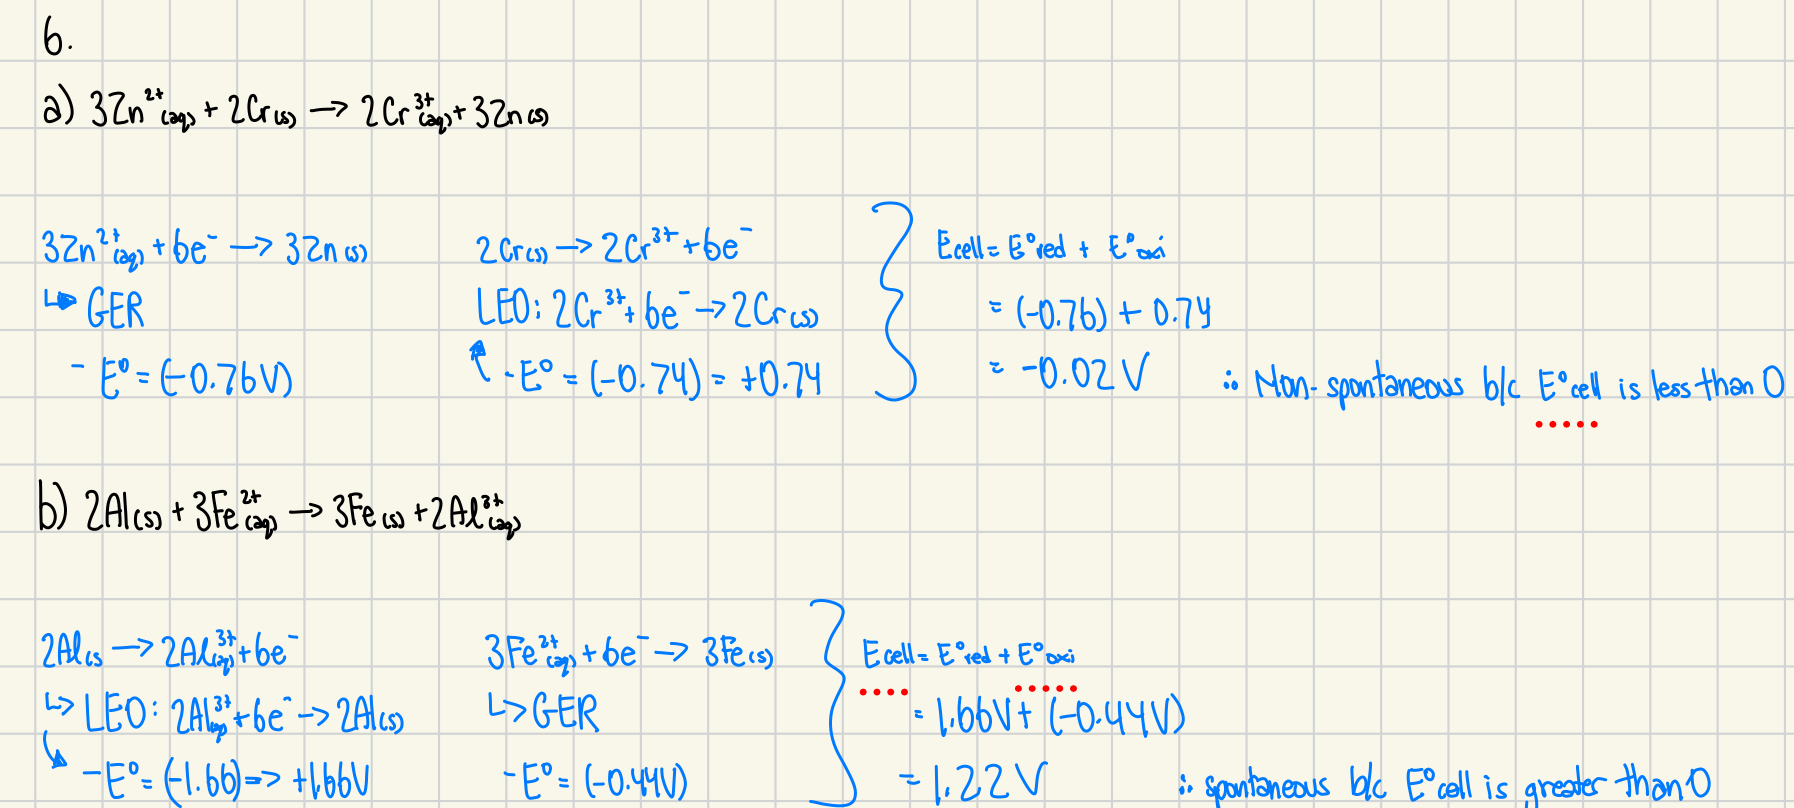 6.
a) 3Zn²⁺(aq) + 2Cr(s) → 2Cr³⁺(aq) + 3Zn(s)
3Zn²⁺(aq) + 6e⁻ → 3Zn(s)
↳ GER
- E° = (-0.76V)
2Cr(s) → 2Cr³⁺ + 6e⁻
LEO: 2Cr³⁺ + 6e⁻ → 2Cr(s)
- E° = (-0.74) = +0.74
Ecell = E°red + E°oxi
= (-0.76) + 0.74
= -0.02 V
∴ Non-spontaneous b/c E°cell is less than 0
b) 2Al(s) + 3Fe²⁺(aq) → 3Fe(s) + 2Al³⁺(aq)
2Al(s → 2Al³⁺(aq) + 6e⁻
↳ LEO: 2Al³⁺(aq) + 6e⁻ → 2Al(s)
- E° = (-1.66) => +1.66V
3Fe²⁺(aq) + 6e⁻ → 3Fe(s)
↳ GER
- E° = (-0.44V)
Ecell = E°red + E°oxi
= 1.66V + (-0.44V)
= 1.22 V
∴ spontaneous b/c E°cell is greater than 0